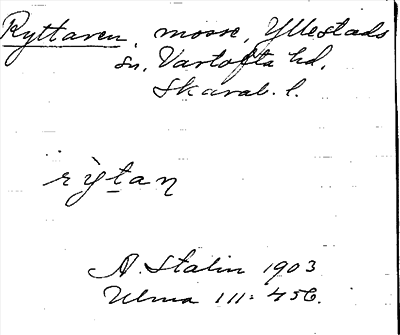 Ryttaren, mosse, Yllestads
sn, Vartofta hd.
Skarab. l.
rỳtan
A. Stalin 1903
Ulma 111:456.